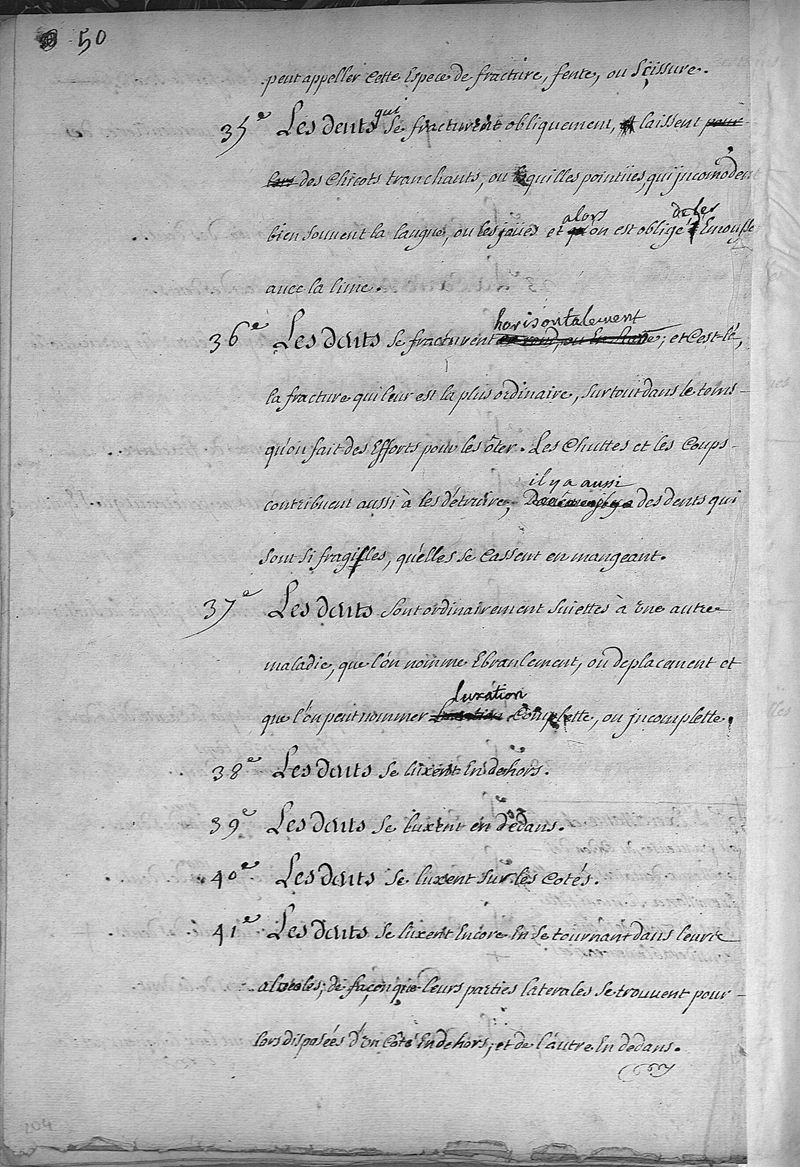 50
peut appeller Cette Espece de fracture, fente, ou Scissure.
35e Les dents qui Se fracturent obliquement, laissent pour
lors des Chicots tranchants, ou Esquilles pointües, qui jncomodent
bien souvent la langue, ou les joües et alors on est obligé de les Emousser
avec la lime.
36e Les dents se fracturent horisontalement; et C'est là,
la fracture qui leur est la plus ordinaire, Surtout dans le tems
qu'on fait des Efforts pour les ôter. Les Chuttes et les Coups
contribuent aussi à les détruire, il y a aussi des dents qui
sont si fragilles, qu'elles se Cassent en mangeant.
37e Les dents Sont ordinairement Suiettes à une autre
maladie, que l'on nomme Ebranlement, ou deplacement et
que l'on peut nommer luxation Complette, ou jncomplette.
38e Les dents se luxent En dehors.
39e Les dents se luxent en dedans.
40e Les dents se luxent sur les Cotés.
41e Les dents se luxent Encore En se tournant dans leurs
alveoles; de façon que leurs parties laterales se trouvent pour
lors disposées d'un Côté En dehors, et de l'autre En dedans.